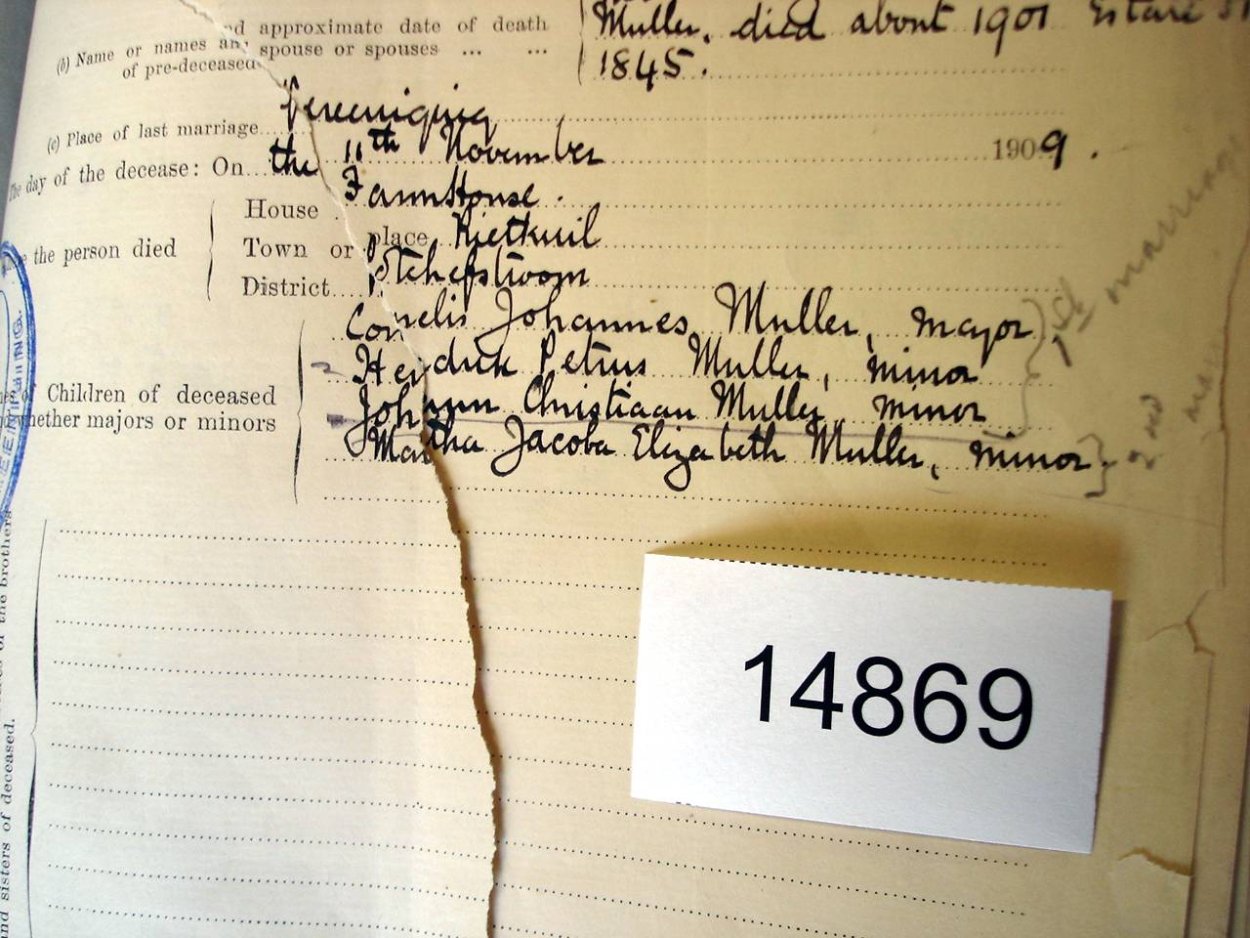 nd approximate date of death
Muller, died about 1901 Estate
(b) Name or names any spouse or spouses ... ...
of pre-deceased
1845.
(c) Place of last marriage Vereeniging
The day of the decease: On the 11th November 1909.
House Farm House.
the person died Town or place Rietkuil
District Potchefstroom
Cornelis Johannes Muller, major
Hendrik Petrus Muller, minor
Children of deceased
Johann Christiaan Muller, minor
whether majors or minors
Martha Jacoba Elizabeth Muller, minor.
1st marriage
2nd
the brothers
and sisters of deceased.
14869